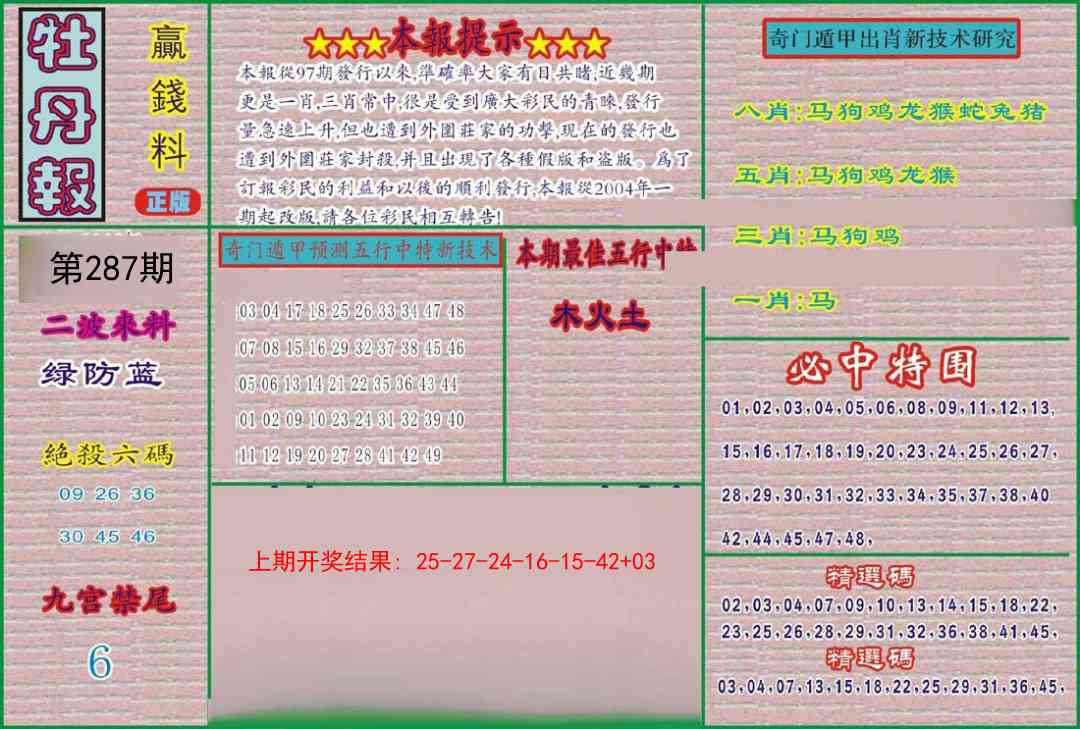 牡丹報
贏錢料
正版
第287期
二波來料
绿防蓝
絶殺六碼
09 26 36
30 45 46
九宫禁尾
6
★★★本報提示★★★
本報從97期發行以來,準確率大家有目共睹,近幾期
更是一肖,三肖常中,很是受到廣大彩民的青睞,發行
量急速上升,但也遭到外圍莊家的功擊,現在的發行也
遭到外圍莊家封殺,并且出現了各種假版和盗版。爲了
訂報彩民的利益和以後的順利發行,本報從2004年一
期起改版,請各位彩民相互轉告!
奇门遁甲预测五行中特新技术
03 04 17 18 25 26 33 34 47 48
07 08 15 16 29 32 37 38 45 46
05 06 13 14 21 22 35 36 43 44
01 02 09 10 23 24 31 32 39 40
11 12 19 20 27 28 41 42 49
本期最佳五行中特
木火土
上期开奖结果：25-27-24-16-15-42+03
奇门遁甲出肖新技术研究
八肖:马狗鸡龙猴蛇兔猪
五肖:马狗鸡龙猴
三肖:马狗鸡
一肖:马
必中特围
01,02,03,04,05,06,08,09,11,12,13,
15,16,17,18,19,20,23,24,25,26,27,
28,29,30,31,32,33,34,35,37,38,40
42,44,45,47,48,
精選碼
02,03,04,07,09,10,13,14,15,18,22,
23,25,26,28,29,31,32,36,38,41,45,
精選碼
03,04,07,13,15,18,22,25,29,31,36,45,